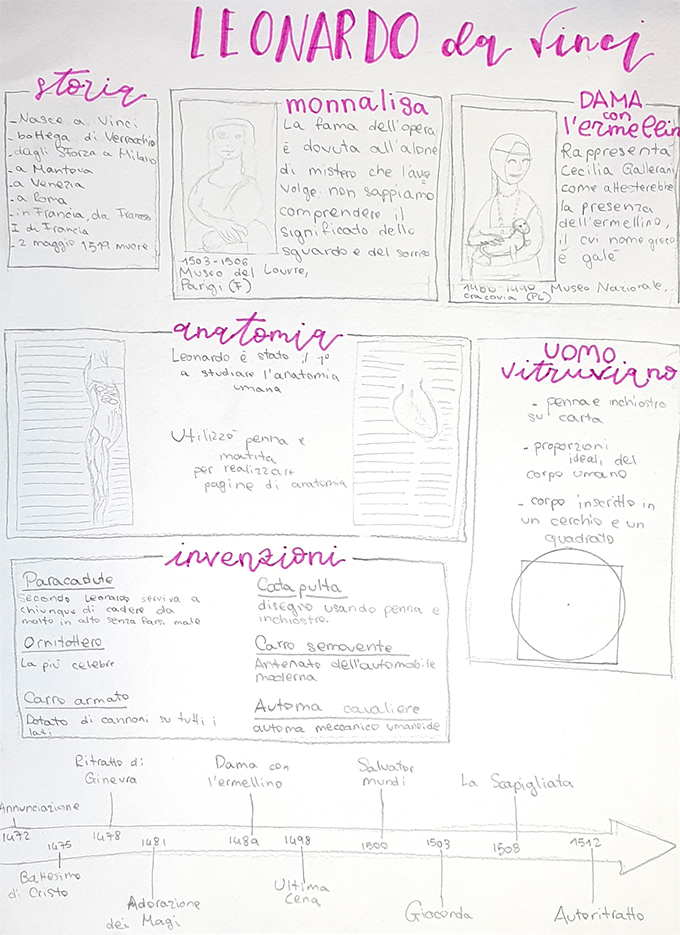 LEONARDO da Vinci
storia
- Nasce a Vinci
- bottega di Verrocchio
- dagli Sforza a Milano
- a Mantova
- a Venezia
- a Roma
- in Francia, da Francesco
I di Francia
- 2 maggio 1519 muore
monnalisa
La fama dell'opera
è dovuta all'alone
di mistero che l'avvolge
volge, non sappiamo
comprendere il
significato dello
sguardo e del sorriso
1503-1506
Museo del Louvre,
Parigi (F)
DAMA
con
l'ermellin
Rappresenta
Cecilia Gallerani
come attesterebbe
la presenza
dell'ermellino,
il cui nome greco
è galé
1488-1490 Museo Nazionale,
cracovia (PL)
anatomia
Leonardo è stato il 1°
a studiare l'anatomia
umana
Utilizzò penna e
matita
per realizzare
pagine di anatomia
UOMO
vitruviano
- penna e inchiostro
su carta
- proporzioni
ideali del
corpo umano
- corpo inscritto in
un cerchio e un
quadrato
invenzioni
Paracadute
Secondo Leonardo serviva a
chiunque di cadere da
molto in alto senza farsi male
Ornitottero
La più celebre
Carro armato
Dotato di cannoni su tutti i
lati
Catapulta
disegno usando penna e
inchiostro.
Carro semovente
Antenato dell'automobile
moderna
Automa cavaliere
automa meccanico umanoide
Ritratto di
Ginevra
Dama con
l'ermellino
Salvator
mundi
La Scapigliata
Annunciazione
1472 1475 1478 1481 1489 1498 1500 1503 1508 1512
Battesimo
di Cristo
Adorazione
dei Magi
Ultima
Cena
Gioconda
Autoritratto